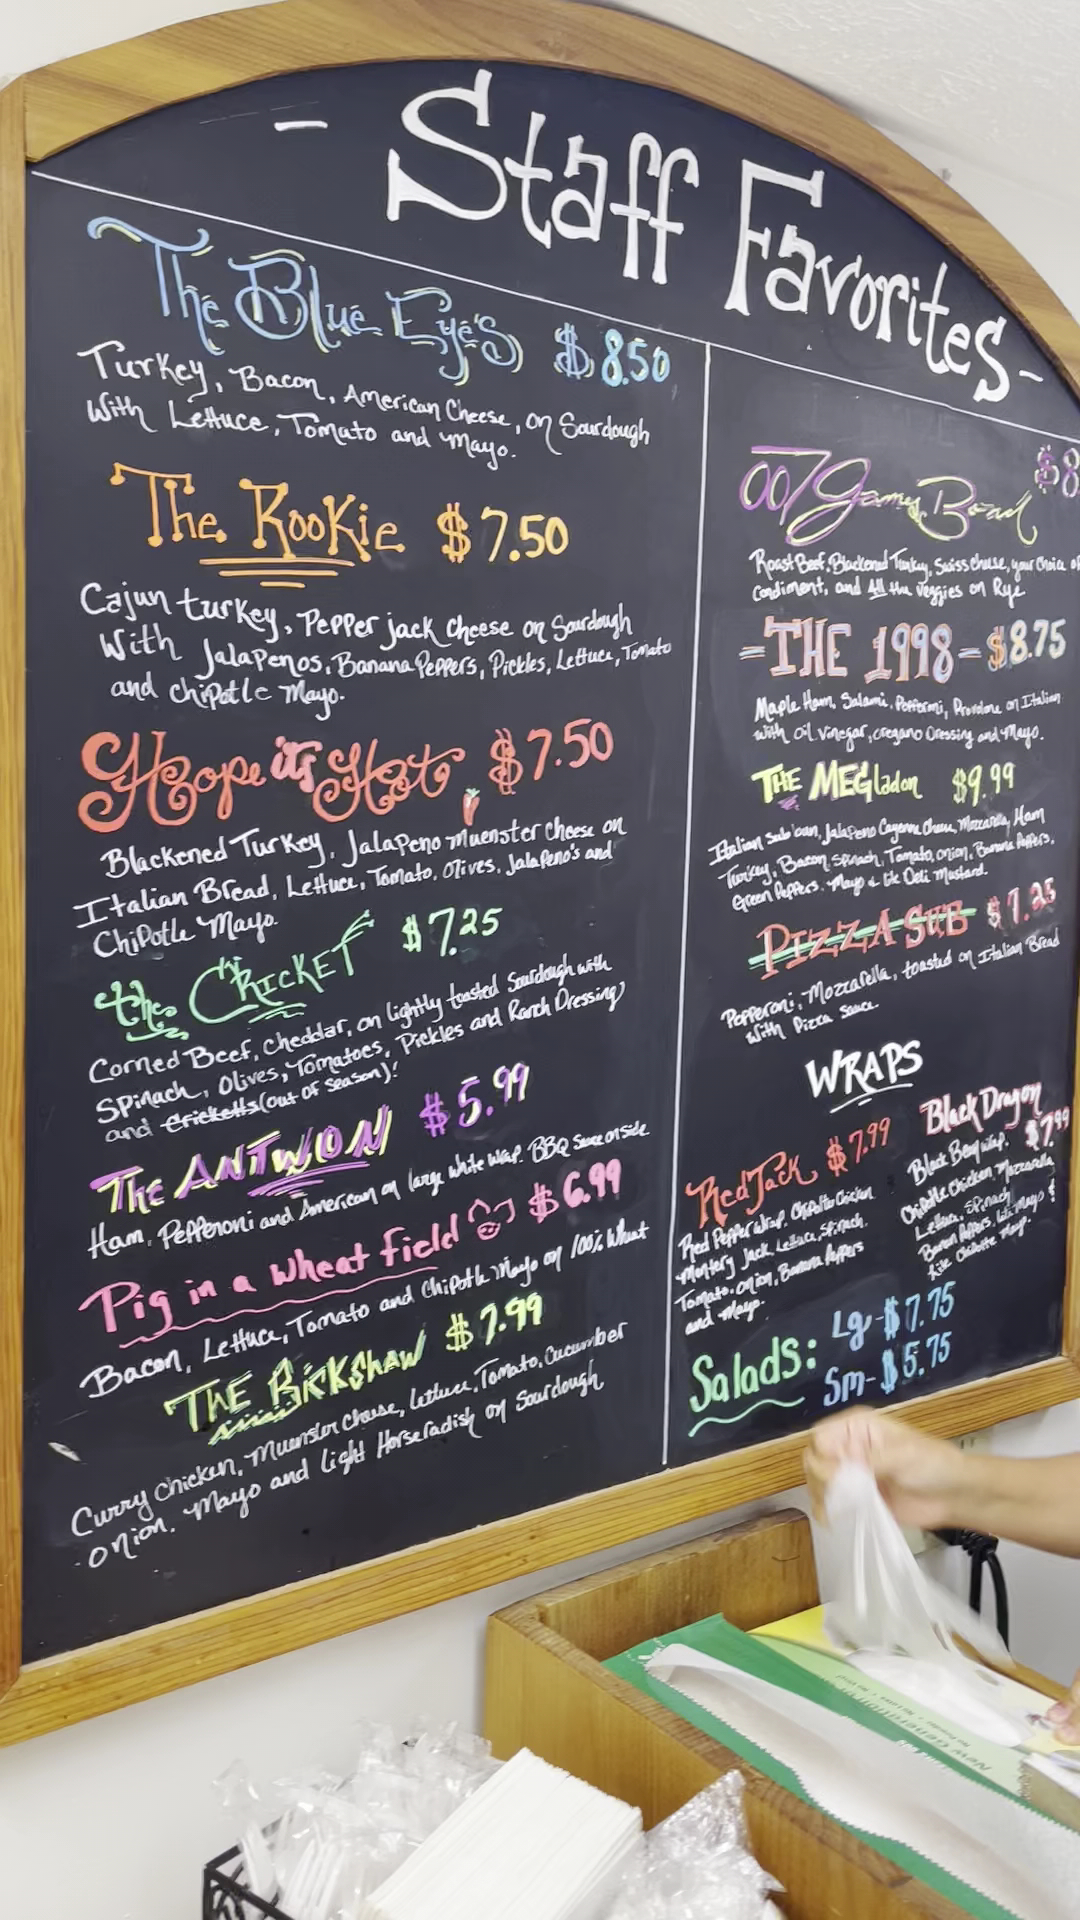 - Staff Favorites -
The Blue Eye's $8.50
Turkey, Bacon, American Cheese, on Sourdough
With Lettuce, Tomato and Mayo.
The Rookie $7.50
Cajun turkey, Pepper jack cheese on Sourdough
With Jalapenos, Banana Peppers, Pickles, Lettuce, Tomato
and chipotle Mayo.
Hope its Hot $7.50
Blackened Turkey, Jalapeno Muenster cheese on
Italian Bread, Lettuce, Tomato, Olives, Jalapeno's and
Chipotle Mayo.
the Cricket $7.25
Corned Beef, Cheddar, on lightly toasted Sourdough with
Spinach, Olives, Tomatoes, Pickles and Ranch Dressing
and Cricketts (out of season)!
The ANTWON $5.99
Ham, Pepperoni and American on large white Wrap. BBQ Sauce on side
Pig in a wheat field $6.99
Bacon, Lettuce, Tomato and Chipotle Mayo on 100% Wheat
The Rickshaw $7.99
Curry Chicken, Muenster Cheese, Lettuce, Tomato, Cucumber
Onion, Mayo and light Horseradish on Sourdough
007 Games Board $8
Roast Beef, Blackened Turkey, Swiss cheese, your Choice of
Condiment, and All the veggies on Rye
- THE 1998 - $8.75
Maple Ham, Salami, Pepperoni, Provolone on Italian
with Oil, Vinegar, oregano Dressing and Mayo.
THE MEGladon $9.99
Italian Sub loaf, Jalapeno Cayenne Cheese, Mozzarella, Ham
Turkey, Bacon, Spinach, Tomato, onion, Banana Peppers,
Green Peppers, Mayo & lite Deli Mustard.
PIZZA SUB $7.25
Pepperoni, Mozzarella, toasted on Italian Bread
With Pizza Sauce.
WRAPS
Red Jack $7.99
Red Pepper Wrap, Chipotle Chicken
Montery Jack, Lettuce, Spinach,
Tomato, Onion, Banana Peppers
and Mayo.
Black Dragon
$7.99
Black Bean Wrap.
Chipotle Chicken Mozzarella
Lettuce, Spinach
Banana Peppers, Mayo &
lite Chipotle Mayo.
Salads: Lg - $7.75
Sm - $5.75
New Generation